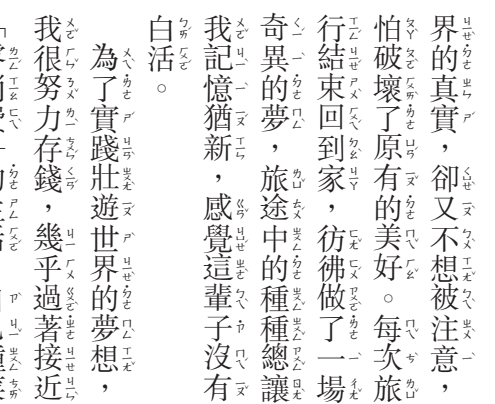 界的真實，卻又不想被注意，
怕破壞了原有的美好。每次旅
行結束回到家，彷彿做了一場
奇異的夢，旅途中的種種總讓
我記憶猶新，感覺這輩子沒有
白活。
為了實踐壯遊世界的夢想，
我很努力存錢，幾乎過著接近